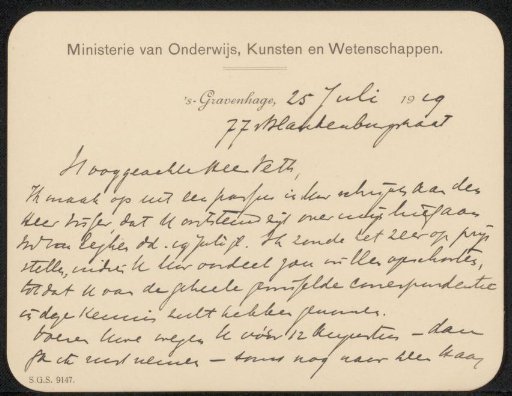 Ministerie van Onderwijs, Kunsten en Wetenschappen.
's-Gravenhage, 25 Juli 1919
77 Blankenburgstraat
Hooggeachte Heer Veth,
Ik maak op uit een passus in Uw schrijven aan den
Heer dat U ontstemd zijt over mijn brief aan
van dd. 19 Juli jl. Ik zoude het zeer op prijs
stellen, indien U Uw oordeel zou willen opschorten,
totdat U van de geheele correspondentie
in deze kennis zult hebben genomen.
Voeren Uwe wegen U vóór 12 Augustus — dan
ga ik met — soms nog naar Den Haag
S.G.S. 9147.